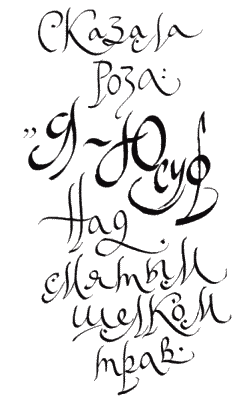 Сказала
Роза:
„Я – Юсуф
Над
смятым
шелком
трав.